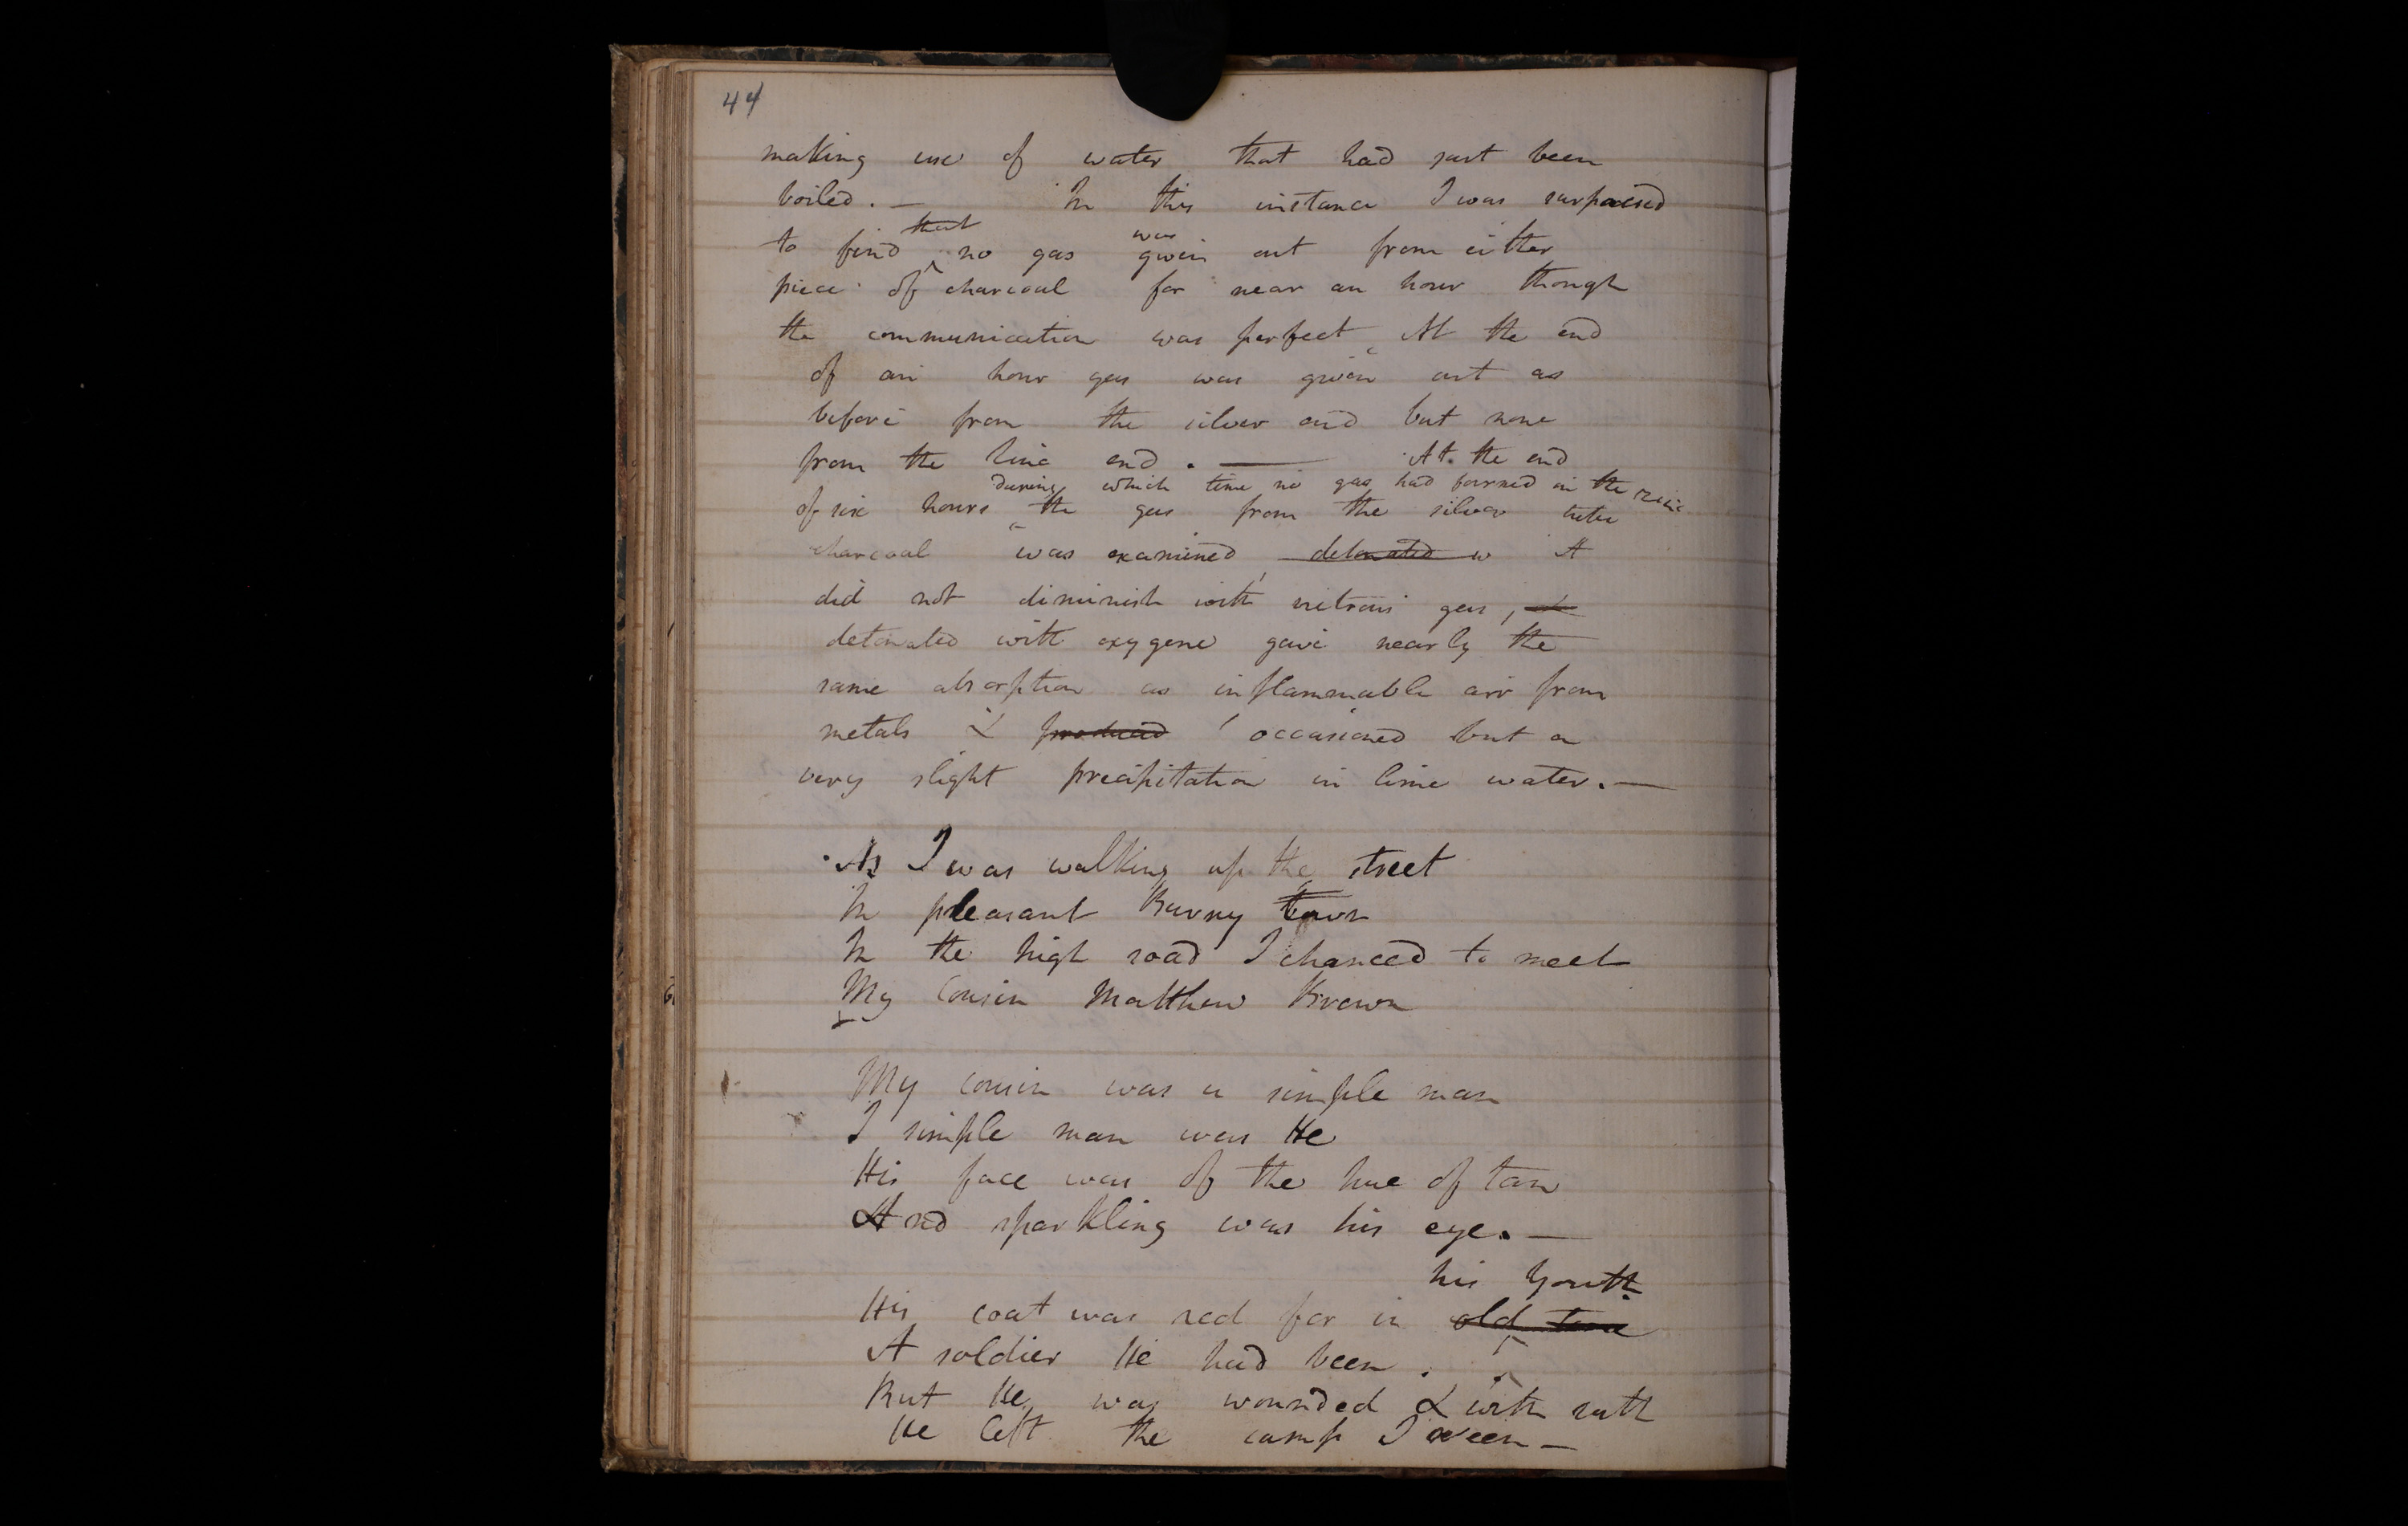 44
making use of water that had just been
boiled. — In this instance I was surprised
to find that no gas was given out from either
piece of charcoal for near an hour though
the communication was perfect At the end
of an hour gas was given out as
before from the silver end but none
from the zinc end. — At the end
during which time no gas had formed in the zinc
of six hours the gas from the silver tube
charcoal was examined detonated w It
did not diminish with nitrous gas, &
detonated with oxygene gave nearly the
same absorption as inflammable air from
metals & produced occasioned but a
very slight precipitation in lime water. —
As I was walking up the street
In pleasant Burny town
In the high road I chanced to meet
My Cousin Matthew Brown
My cousin was a simple man
A simple man was He
His face was of the hue of tan
And sparkling was his eye. —
his Youth
His coat was red for in old time
A soldier He had been.
But He was wounded & with ruth
He left the camp I ween —